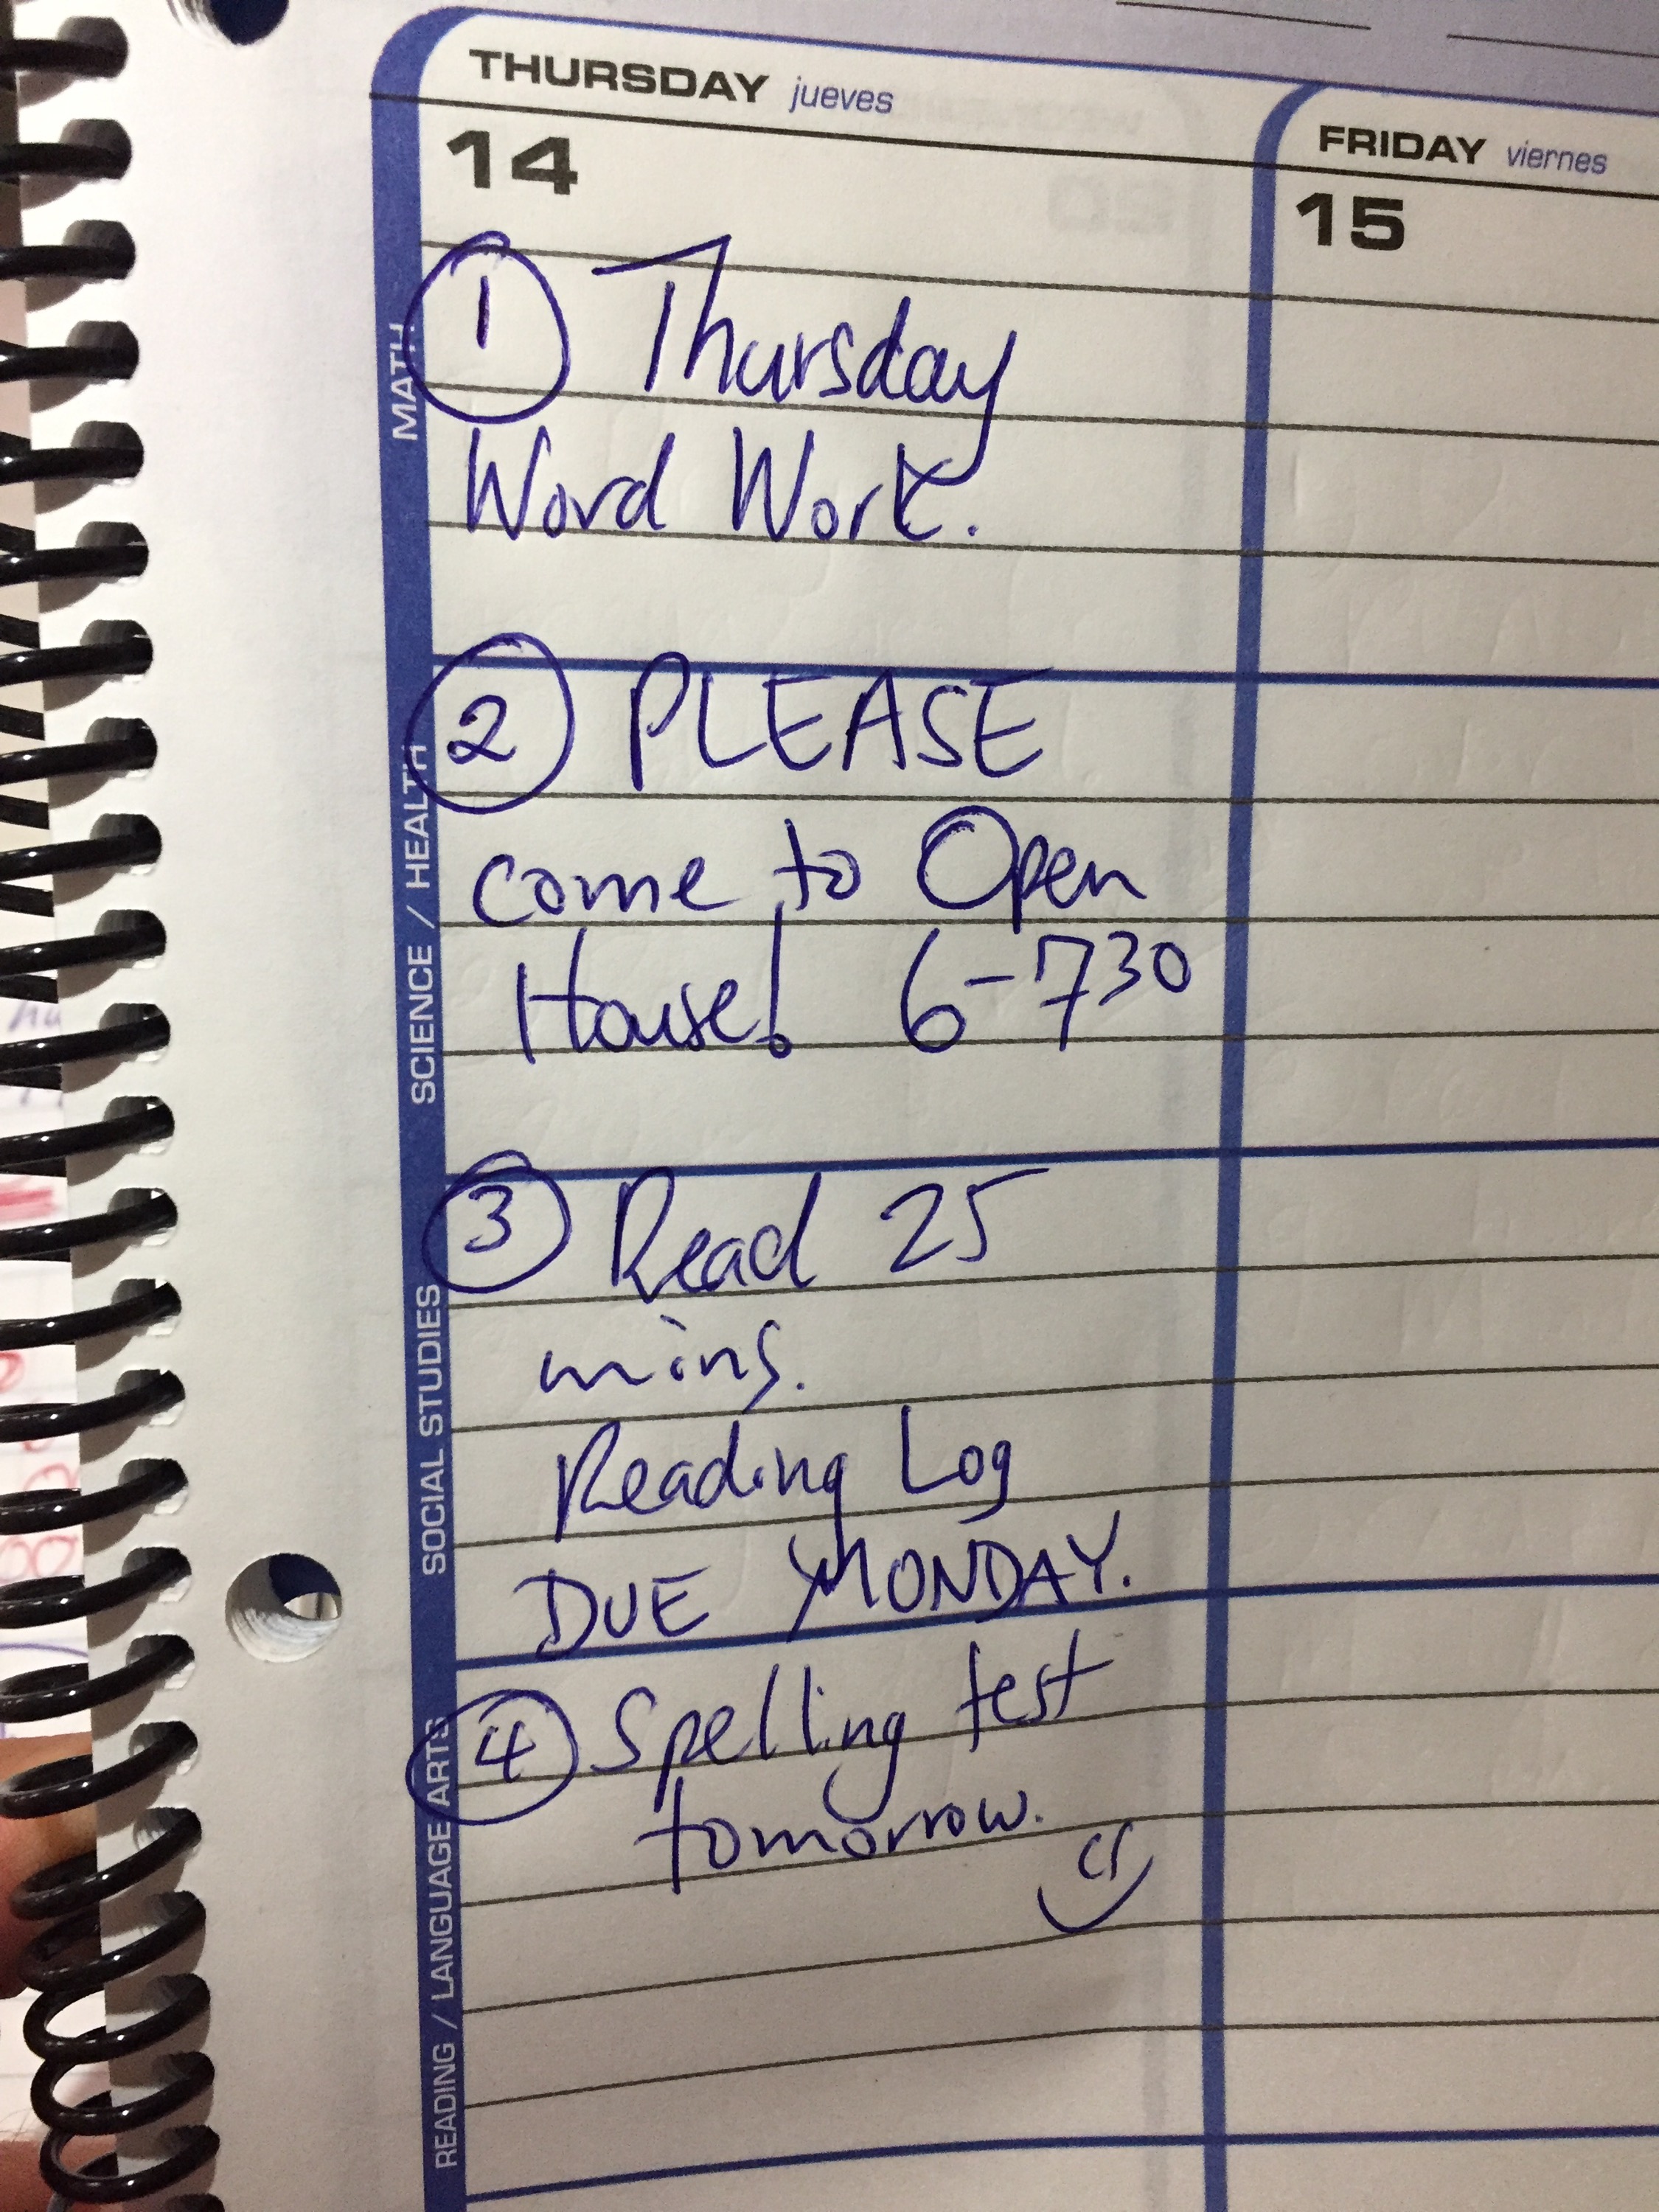 THURSDAY jueves
14
① Thursday
Word Work.
② PLEASE
come to Open
House! 6-7³⁰
③ Read 25
mins.
Reading Log
DUE MONDAY.
④ Spelling test
tomorrow.
FRIDAY viernes
15
MATH
SCIENCE / HEALTH
SOCIAL STUDIES
READING / LANGUAGE ARTS